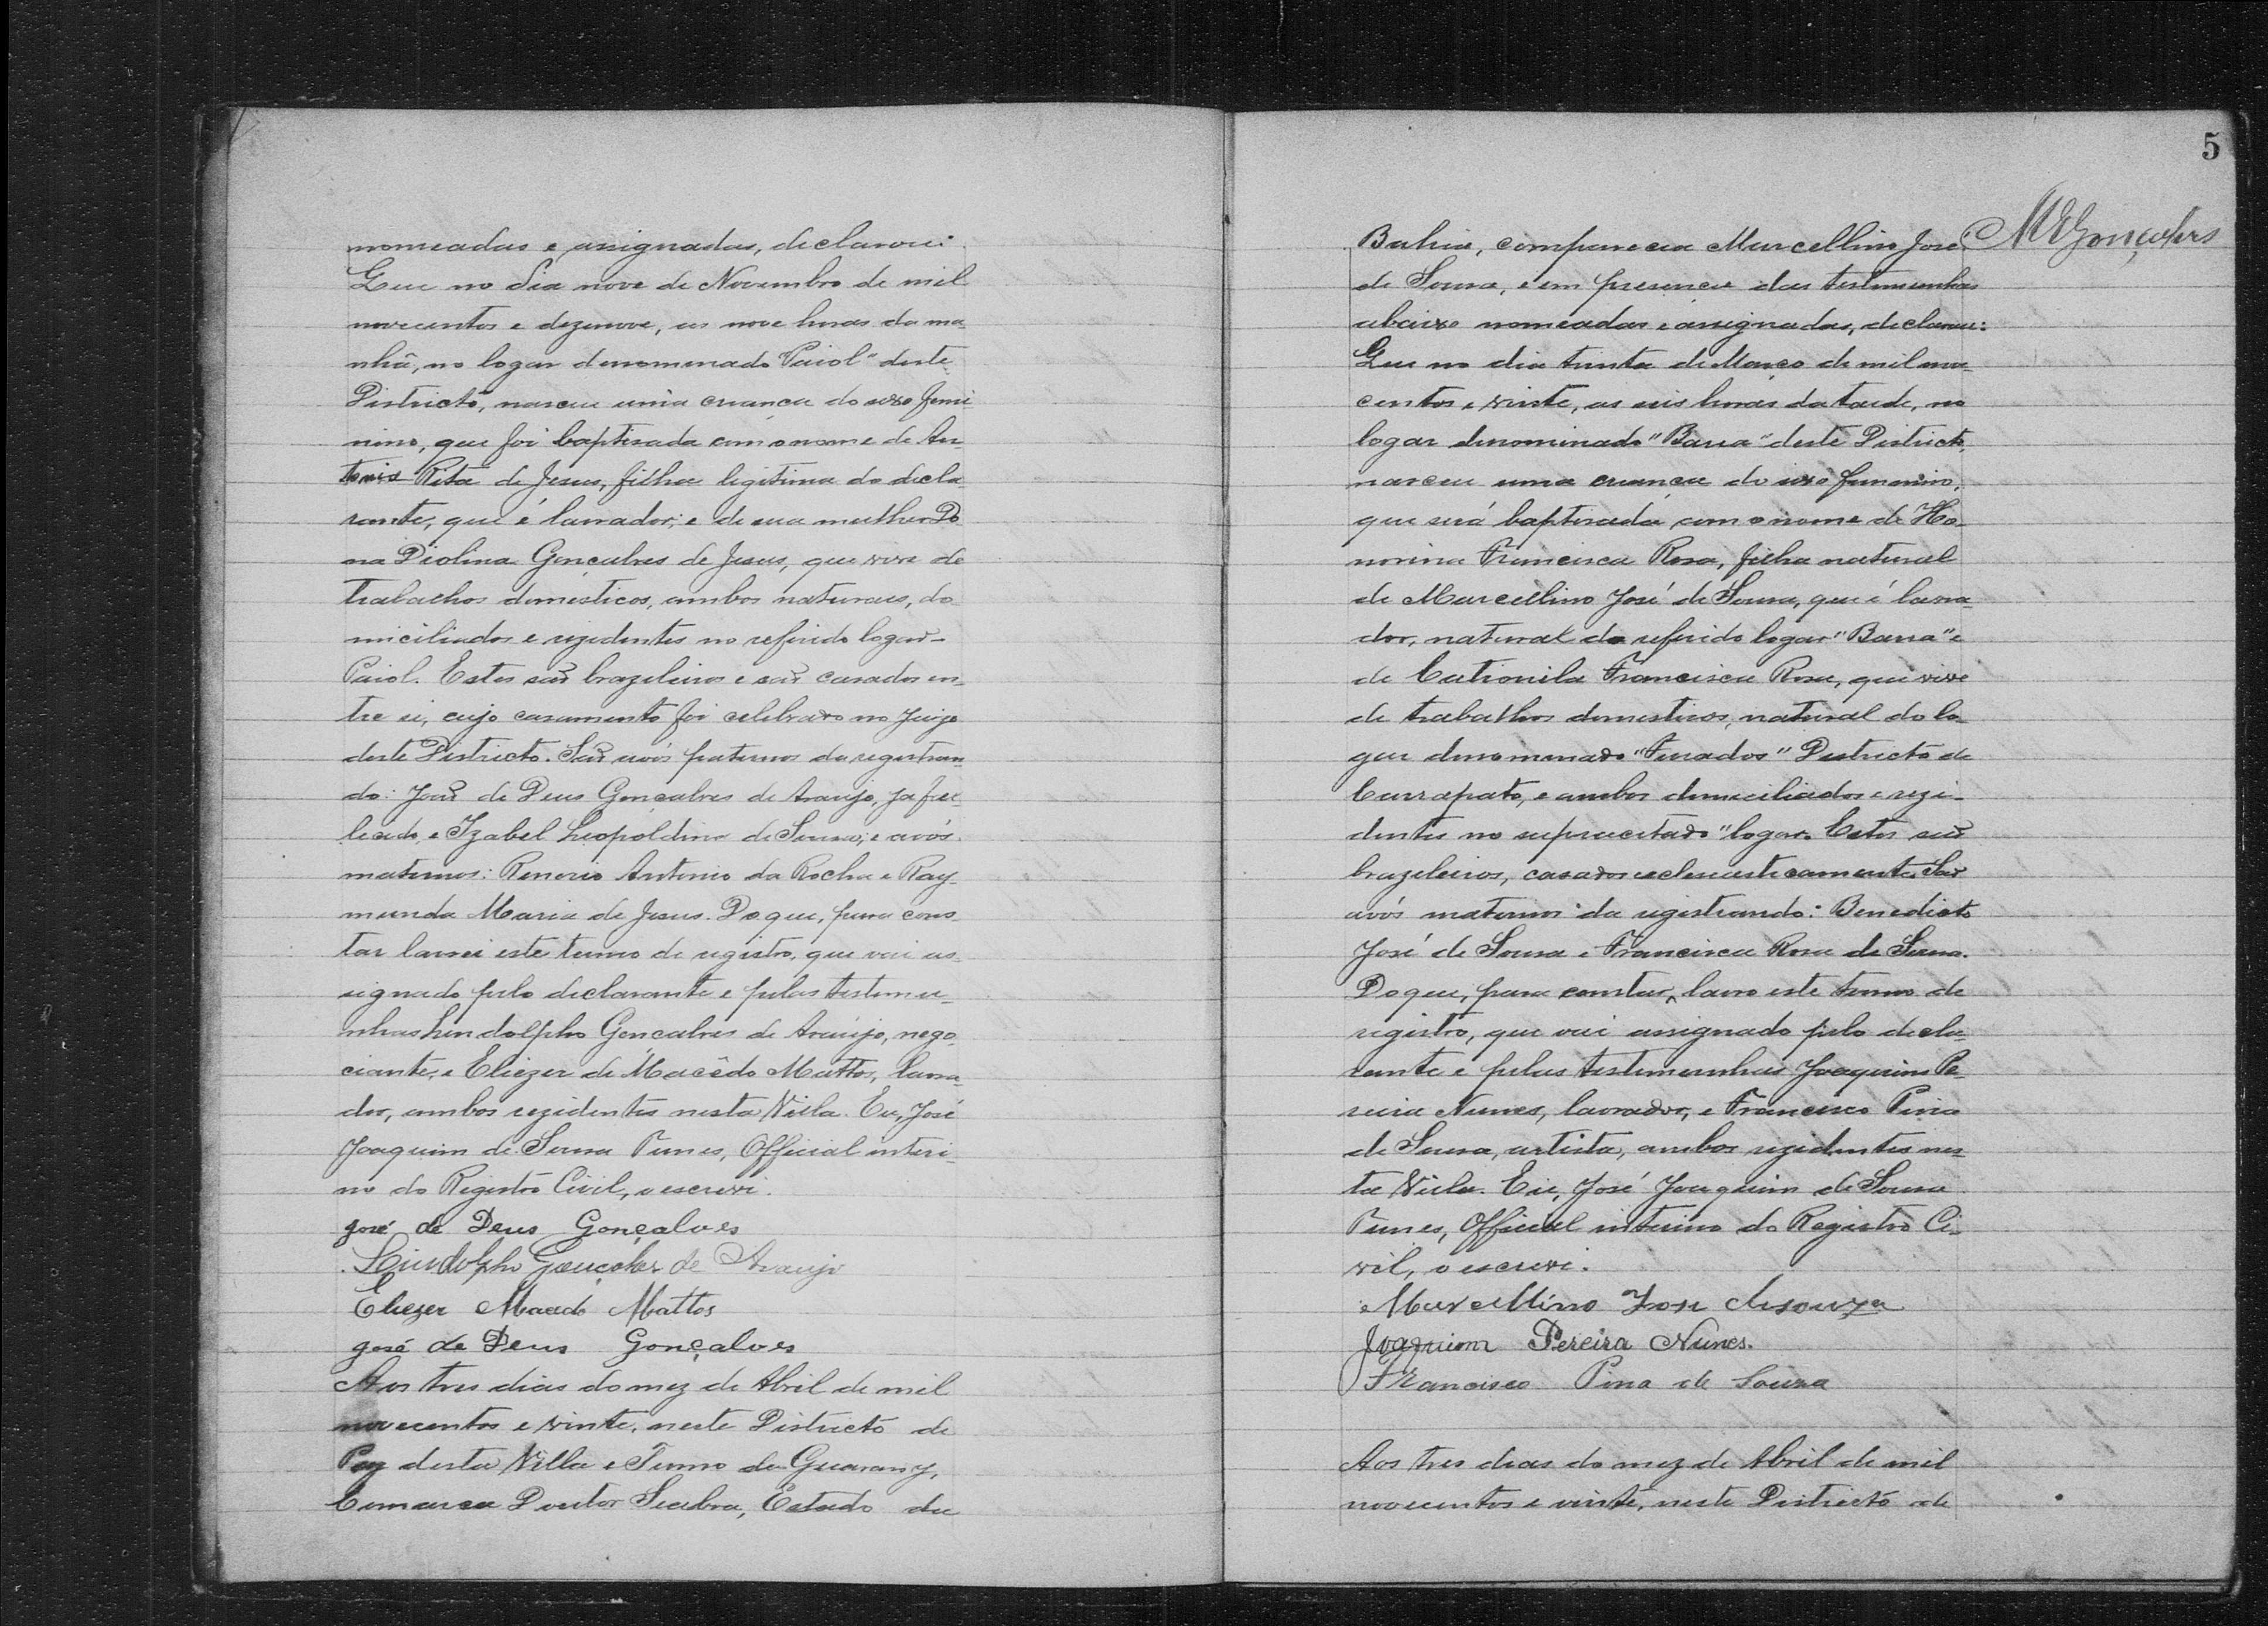 nomeadas e assignadas, declarou:
Que no dia nove de Novembro de mil
novecentos e dezenove, as nove horas da ma
nhã, no logar denomenado "Paiol" deste
Districto, nasceu uma creança do sexo femi
nino, que foi baptisada com o nome de An-
tonia Rita de Jesus, filha legitima do decla
rante, que é lavrador; e de sua mulher Do
na Diolina Gonçalves de Jesus, que vive de
trabalhos domesticos, ambos naturaes, do
miciliados e rezidentes no referido logar -
Paiol. Estes são brazileiros e são casados en-
tre si, cujo casamento foi celebrado no Juizo
deste Districto. São avós paternos da registran
do: João de Deus Gonçalves de Araujo, ja fal
lecido, e Izabel Leopoldina de Souza; e avós
maternos: Renerio Antonio da Rocha e Ray-
munda Maria de Jesus. Do que, para cons
tar lavrei este termo de registro, que vai as-
signado pelo declarante e pelas testemu-
nhas Lindolpho Gonçalves de Araujo, nego
ciante, e Eliezer de Macêdo Mattos, lavra-
dor, ambos rezidentes nesta Villa. Eu, José
Joaquim de Sousa Funes, Official interi-
no do Registro Civil, o escrevi.
José de Deus Gonçalves
Lindolpho Gonçalves de Araujo
Eliezer Macedo Mattos
José de Deus Gonçalves
Aos tres dias do mez de Abril de mil
novecentos e vinte, neste Districto de
Paz desta Villa e Termo de Guarany,
Comarca Doutor Seabra, Estado da
5
Bahia, compareceu Marcellino José
Gonçalves
de Sousa, e em presença das testemunhas
abaixo nomeadas e assignadas, declarou:
Que no dia trinta de Março de mil nove-
centos e vinte, as seis horas da tarde, no
logar denominado "Barra" deste Districto,
nasceu uma creança do sexo femenino,
que será baptisada com o nome de Ho-
norina Francisca Rosa, filha natural
de Marcellino José de Sousa, que é lavra-
dor, natural do referido logar "Barra" e
de Catronila Francisca Rosa, que vive
de trabalhos domesticos, natural do lo-
gar denomenado "Furados" Districto de
Carrapato, e ambos domiciliados e rezi-
dentes no supracitado "logar. Estes são
brazileiros, casados eclesiasticamente. São
avós maternos da registrando: Benedicto
José de Sousa e Francisca Rosa de Sousa.
Do que, para constar, lavro este termo de
registro, que vai assignado pelo decla-
rante e pelas testemunhas Joaquim Pe-
reira Nunes, lavrador, e Francisco Pina
de Sousa, artista, ambos rezidentes nes-
ta Villa. Eu, José Joaquim de Sousa
Funes, Official interino do Registro Ci-
vil, o escrevi.
Marcellino Jose de souza
Joaquim Pereira Nunes.
Francisco Pina de Souza
Aos tres dias do mez de Abril de mil
novecentos e vinte, neste Districto de